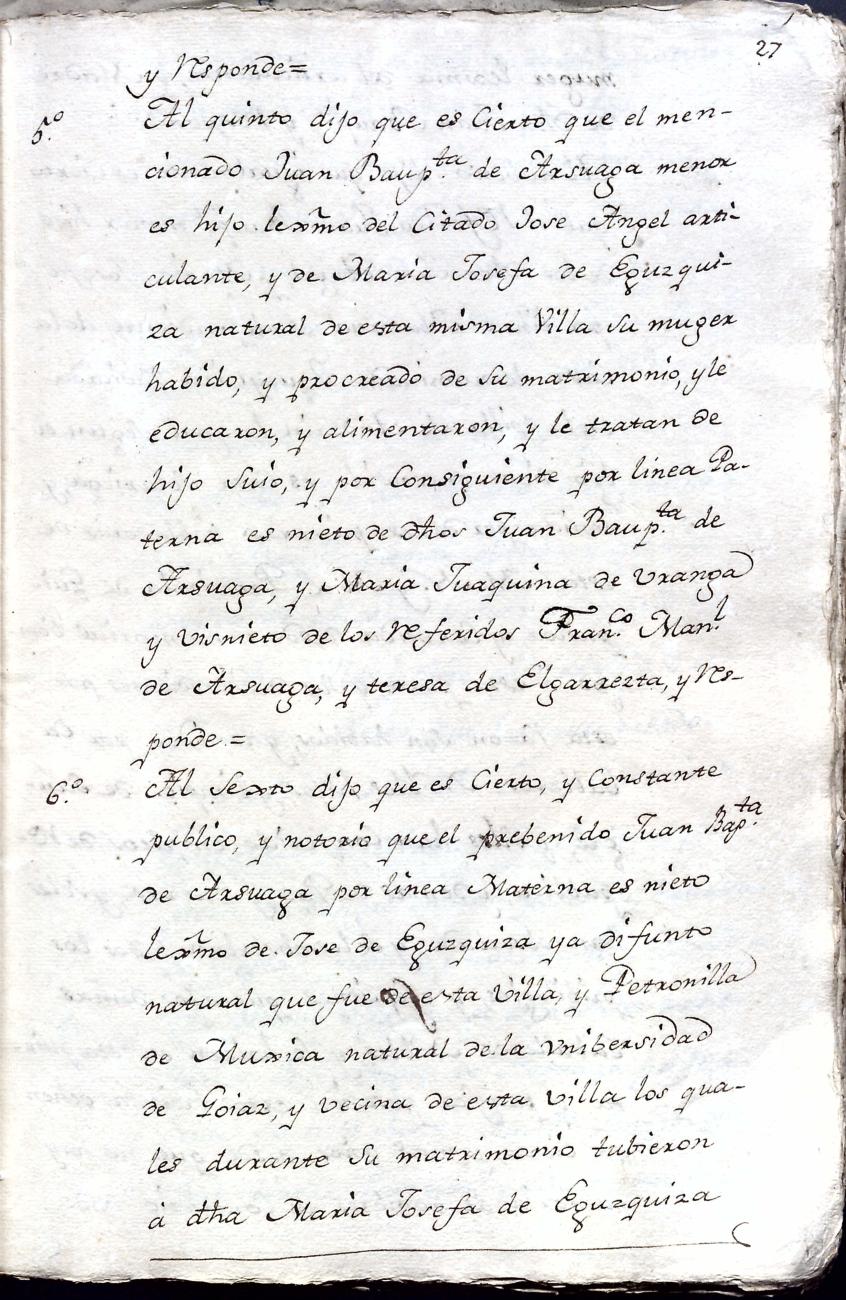 27
y Responde=
5.º Al quinto dijo que es Cierto que el men-
cionado Juan Baup.ta de Arsuaga menor
es hijo lexmo del Citado Jose Angel arti-
culante, y de Maria Josefa de Eguzqui-
za natural de esta misma Villa su muger
habido, y procreado de su matrimonio, y le
educaron, y alimentaron, y le tratan de
hijo Suio, y por Consiguiente por linea Pa-
terna es nieto de dhos Juan Baup.ta de
Arsuaga, y Maria Juaquina de Vranga
y visnieto de los Referidos Fran.co Man.l
de Arsuaga, y teresa de Elgarrezta, y Res-
ponde.=
6.º Al Sexto dijo que es Cierto, y Constante
publico, y notorio que el prebenido Juan Bap.ta
de Arsuaga por linea Materna es nieto
lexmo de Jose de Eguzquiza ya difunto
natural que fue de esta Villa, y Petronilla
de Muxica natural de la Vnibersidad
de Goiaz, y vecina de esta villa los qua-
les durante su matrimonio tubieron
à dha Maria Josefa de Eguzquiza